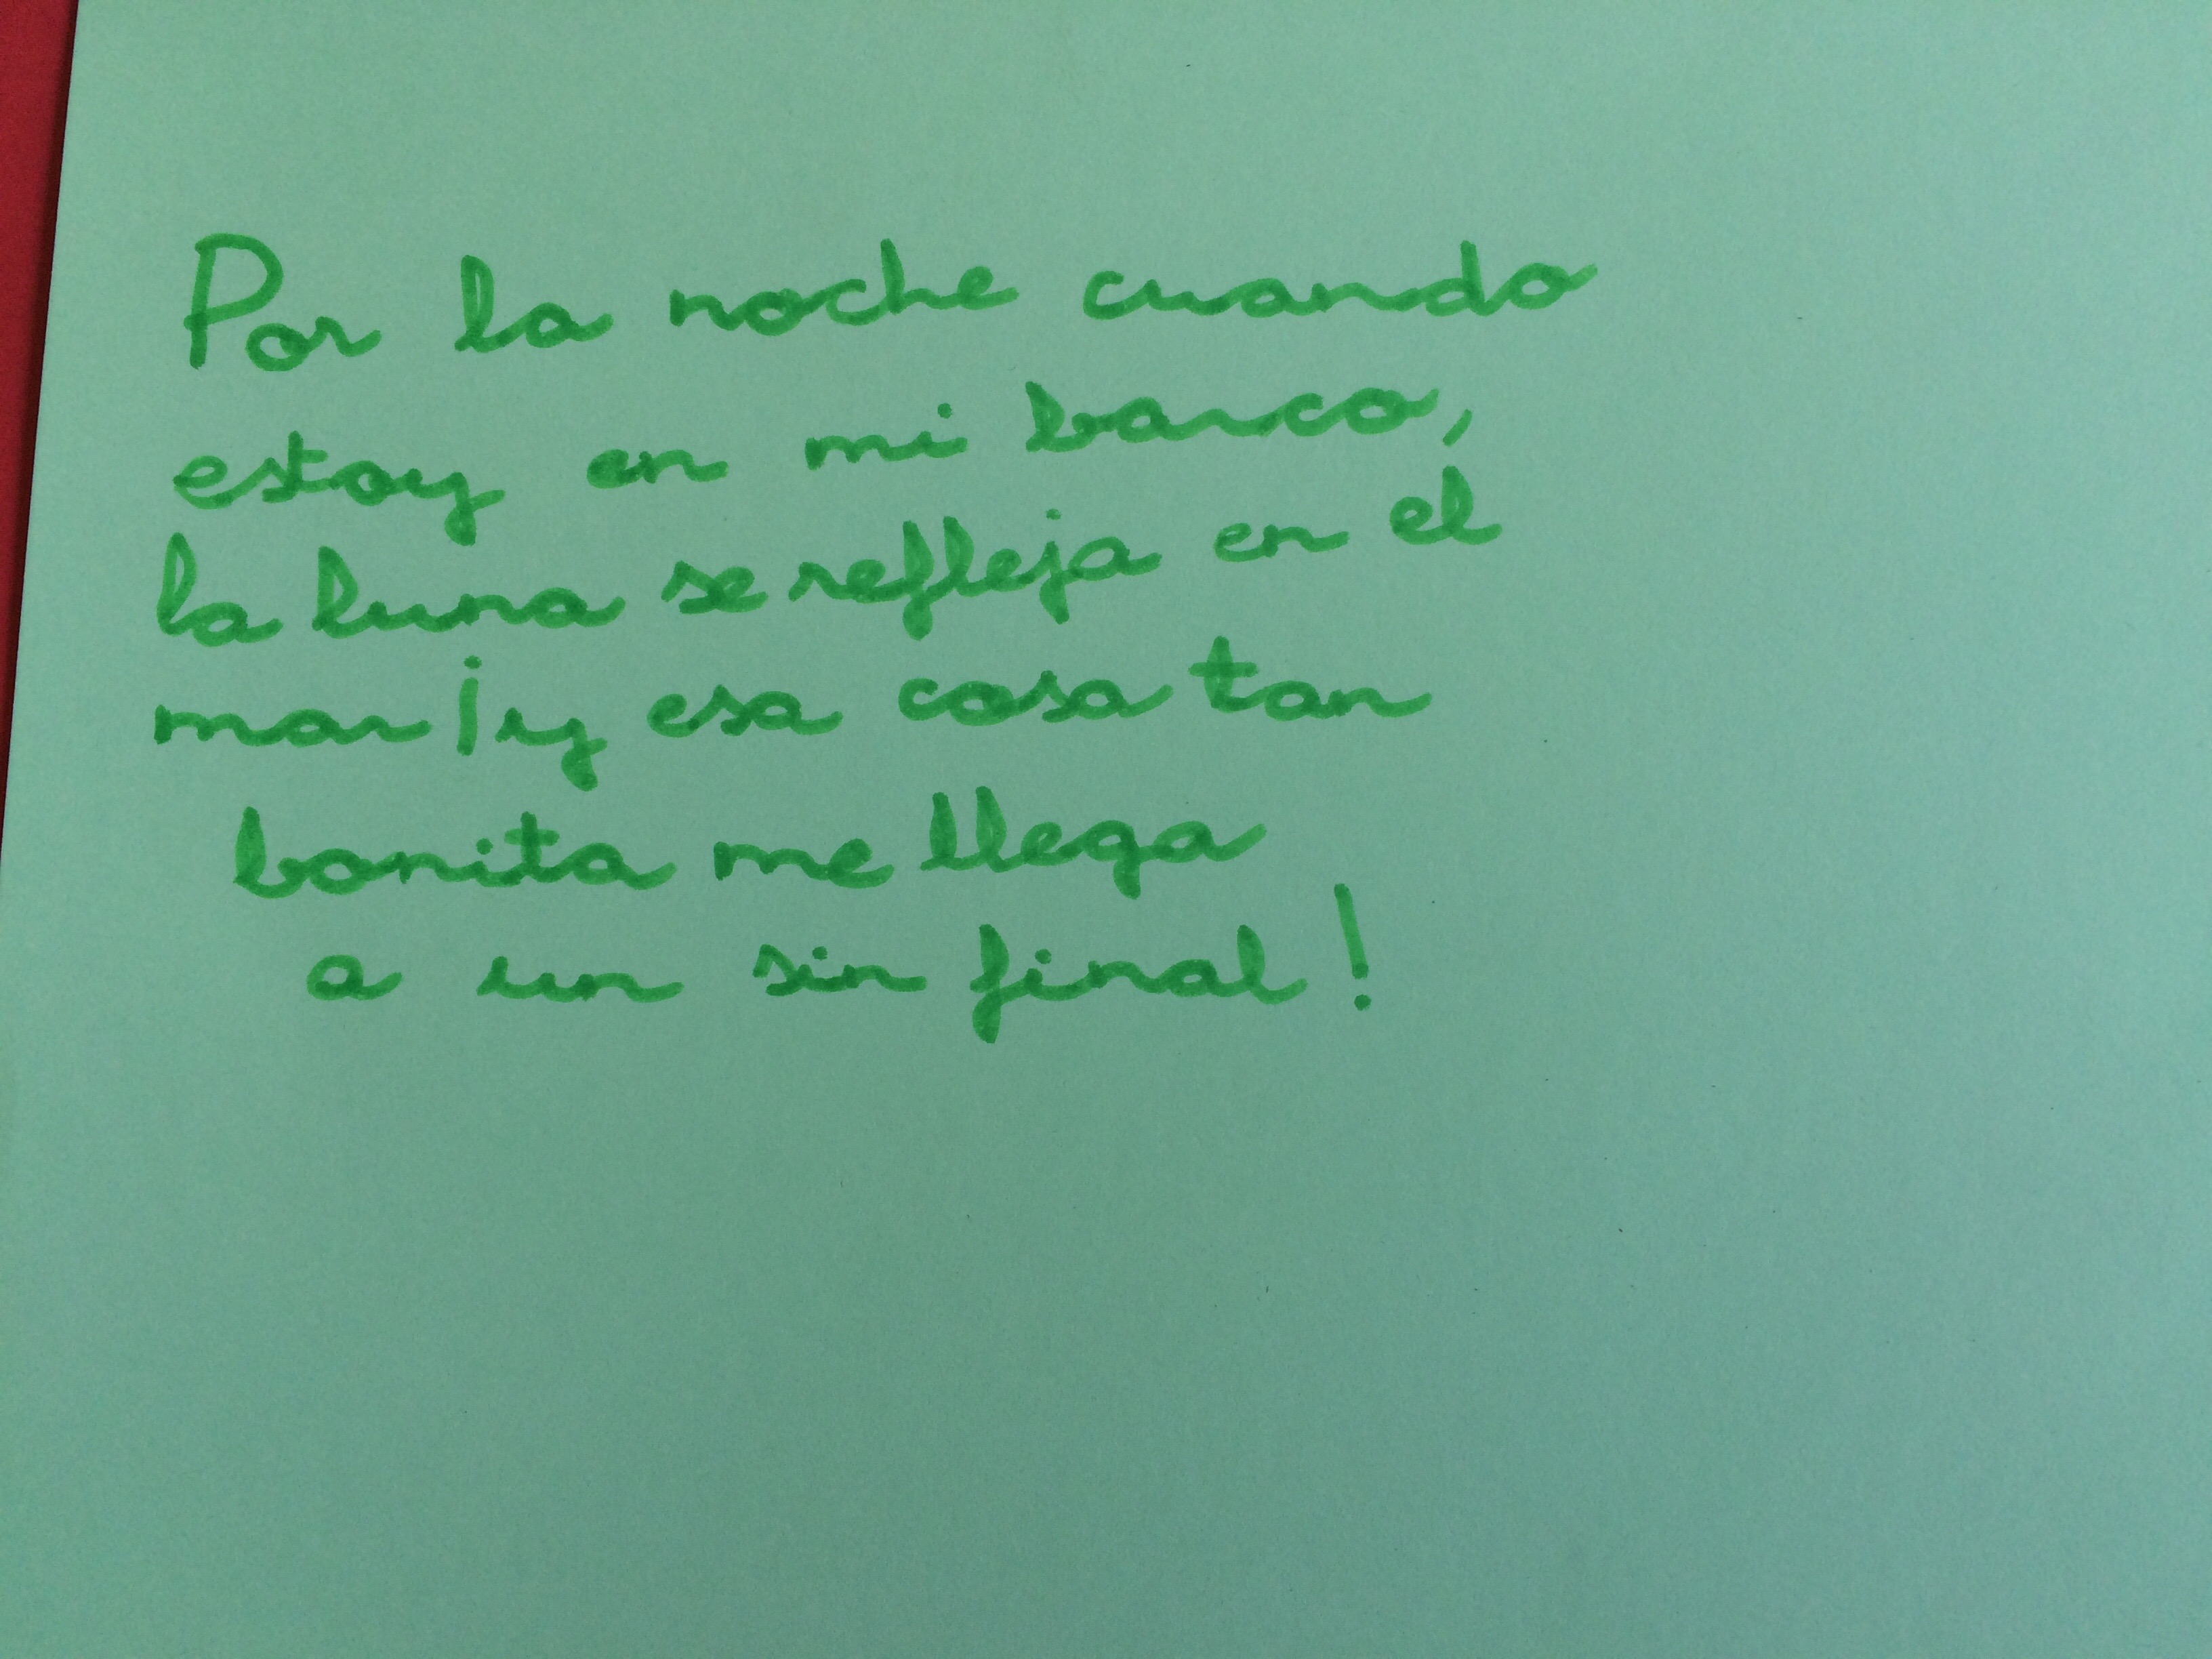 Por la noche cuando
estoy en mi barco,
la luna se refleja en el
mar ¡y esa cosa tan
bonita me llega
a un sin final!